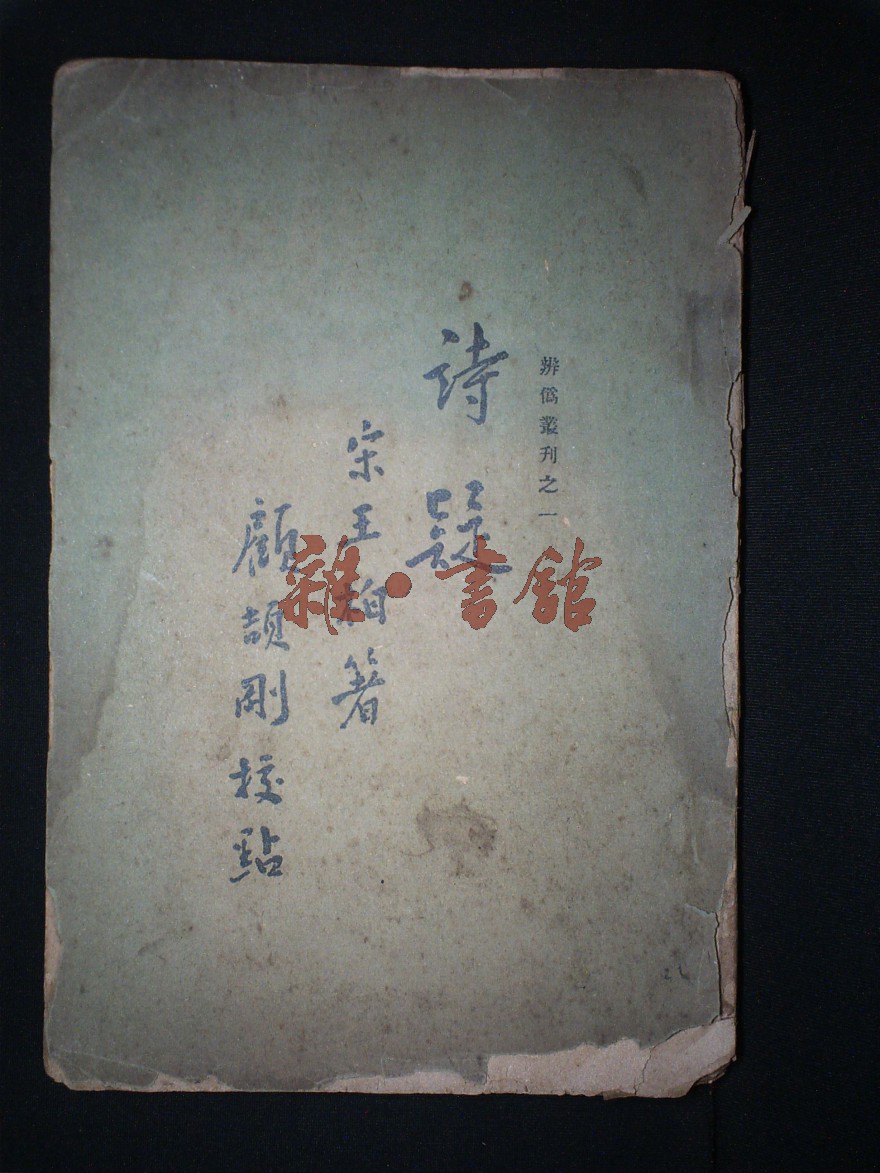 辨僞叢刊之一
詩疑
宋王柏著
顧頡剛校點
雜·書館